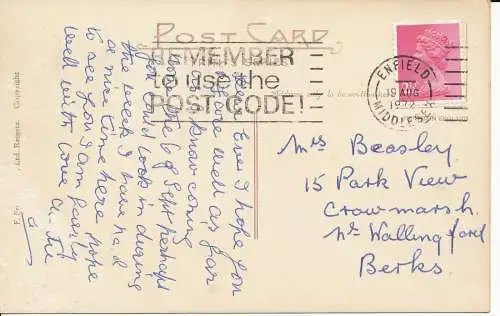 POST CARD
REMEMBER
to use the
POST CODE!
ENFIELD
19 AUG
1972
MIDDLESEX
Mrs Beasley
15 Park View
Crowmarsh.
Nr Wallingford
Berks.
Eve I hope you
are well as far
know coming
6 of Sept perhaps
you could look in during
the week I have had
a nice time here hope
to see you I am fairly
well with love
Copyright